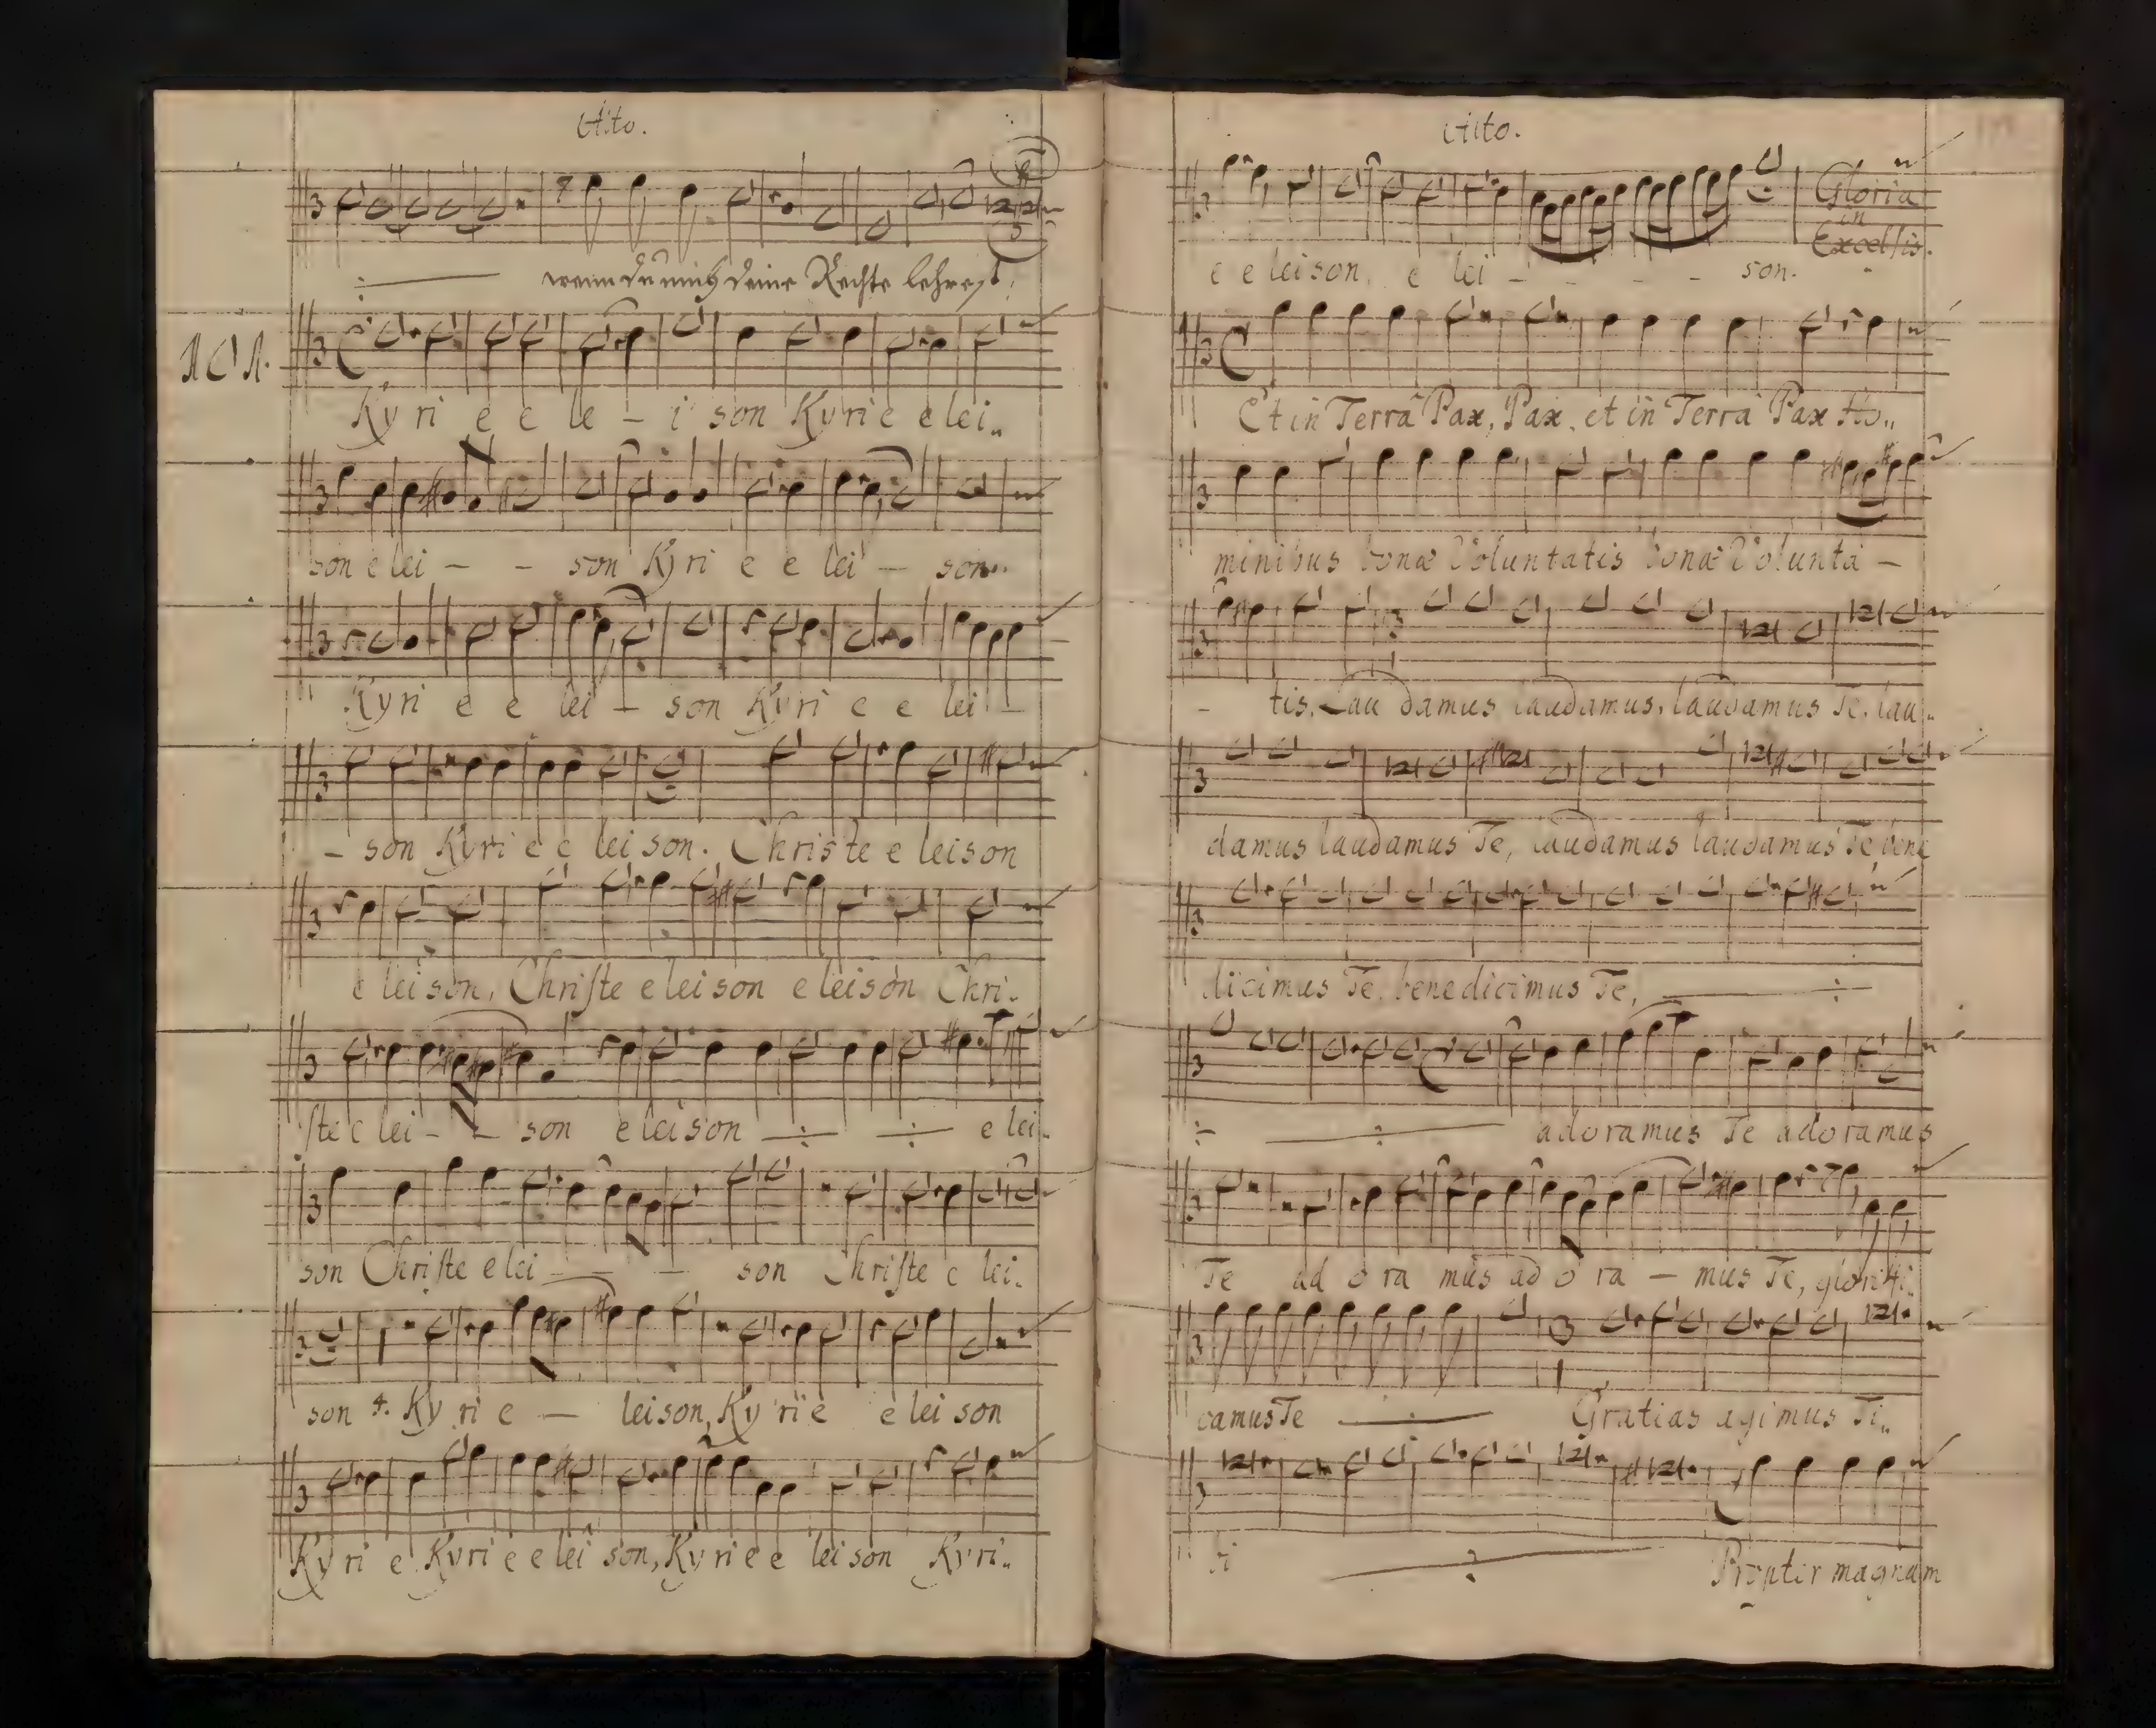 Alto.
wenn du mich deine Rechte lehrest.
101.
Kyri e e le - i son Kyrie elei„
son e lei - - son Kyri e e lei - son„
Kyri e e lei - son Kyri e e lei -
- son Kyri e e lei son. Christe e leison
e leison, Chriſte eleison eleison Chri„
ſte e lei - - son eleison ÷ ÷ e lei„
son Chriſte e lei - - - son Chriſte e lei„
son 4. Ky ri e - leison, Ky rie e lei son
Ky ri e Kyri e e lei son, Ky rie e lei son Kyri„
Alto.
e e leison, e lei - - - - - son.
Gloria
in
Excelſis.
Et in Terra Pax, Pax, et in Terra Pax Ho„
minibus bonæ Voluntatis bonæ Volunta -
- tis. Lau damus laudamus, laudamus Te, lau„
damus laudamus Te, laudamus laudamus Te, bene
dicimus Te, benedicimus Te, ÷
÷ ÷ adoramus Te adoramus
Te ad o ra mus ad o ra - mus Te, glorifi„
camus Te ÷ Gratias agimus Ti„
bi ÷ Propter magnam